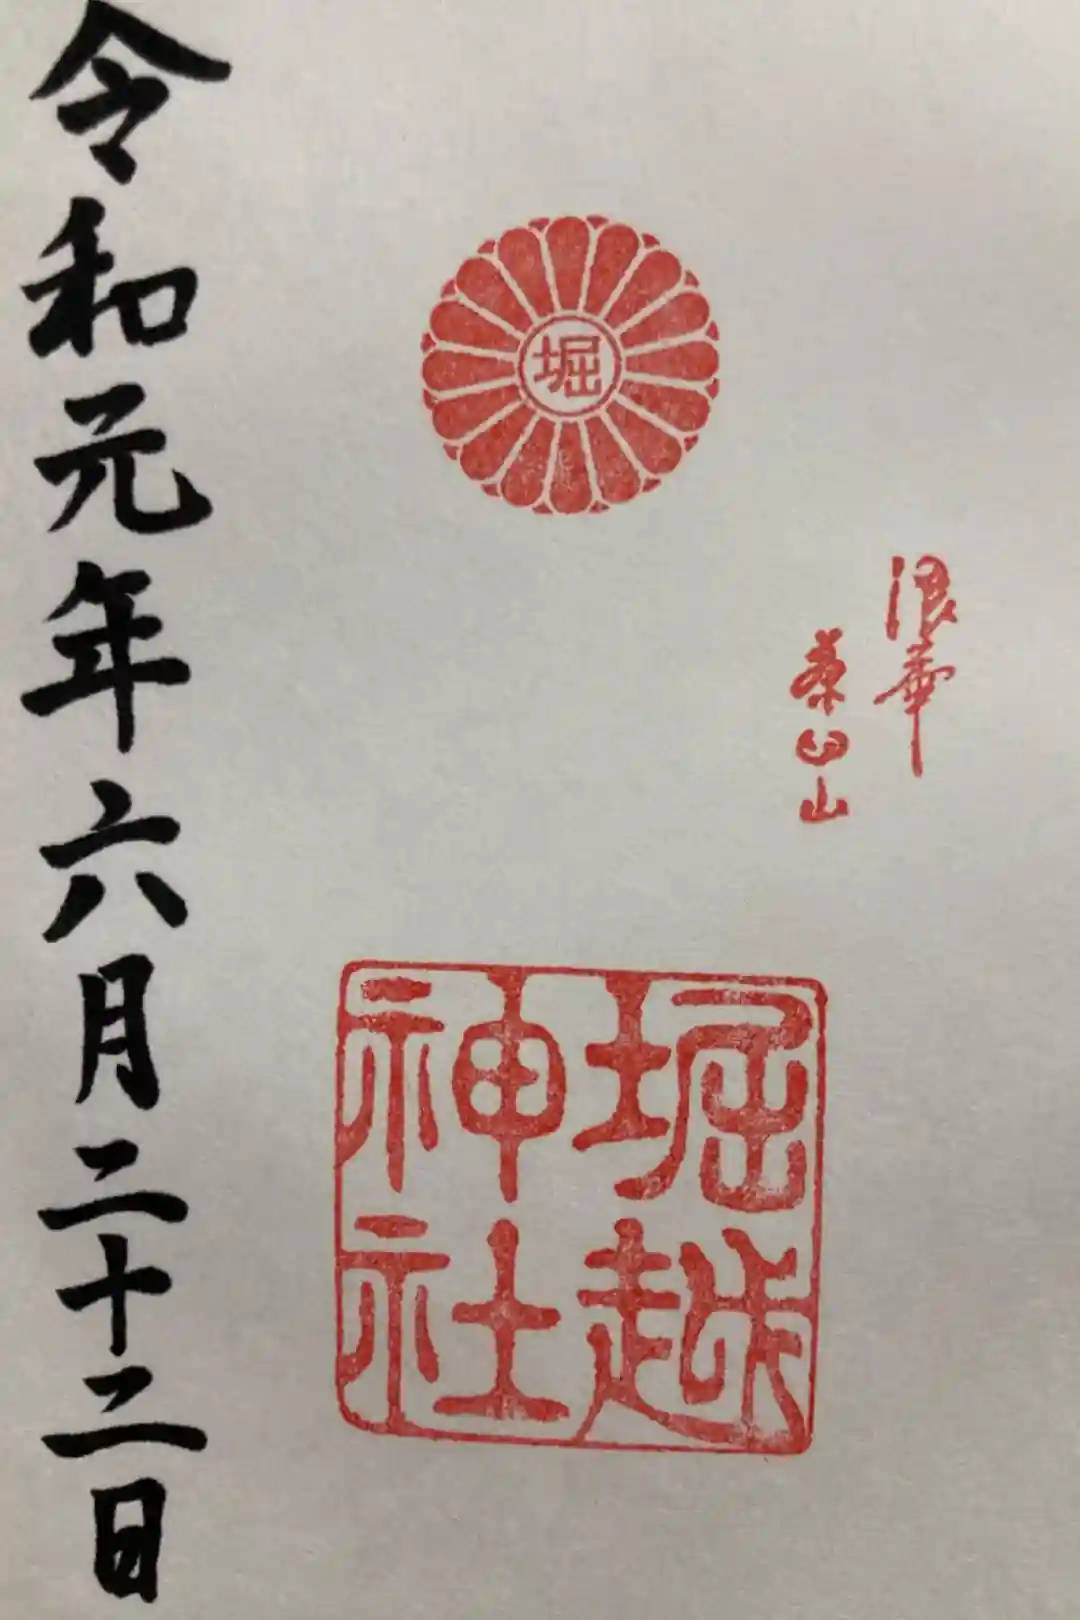 堀
浪華
茶臼山
堀越
神社
令和元年六月二十二日